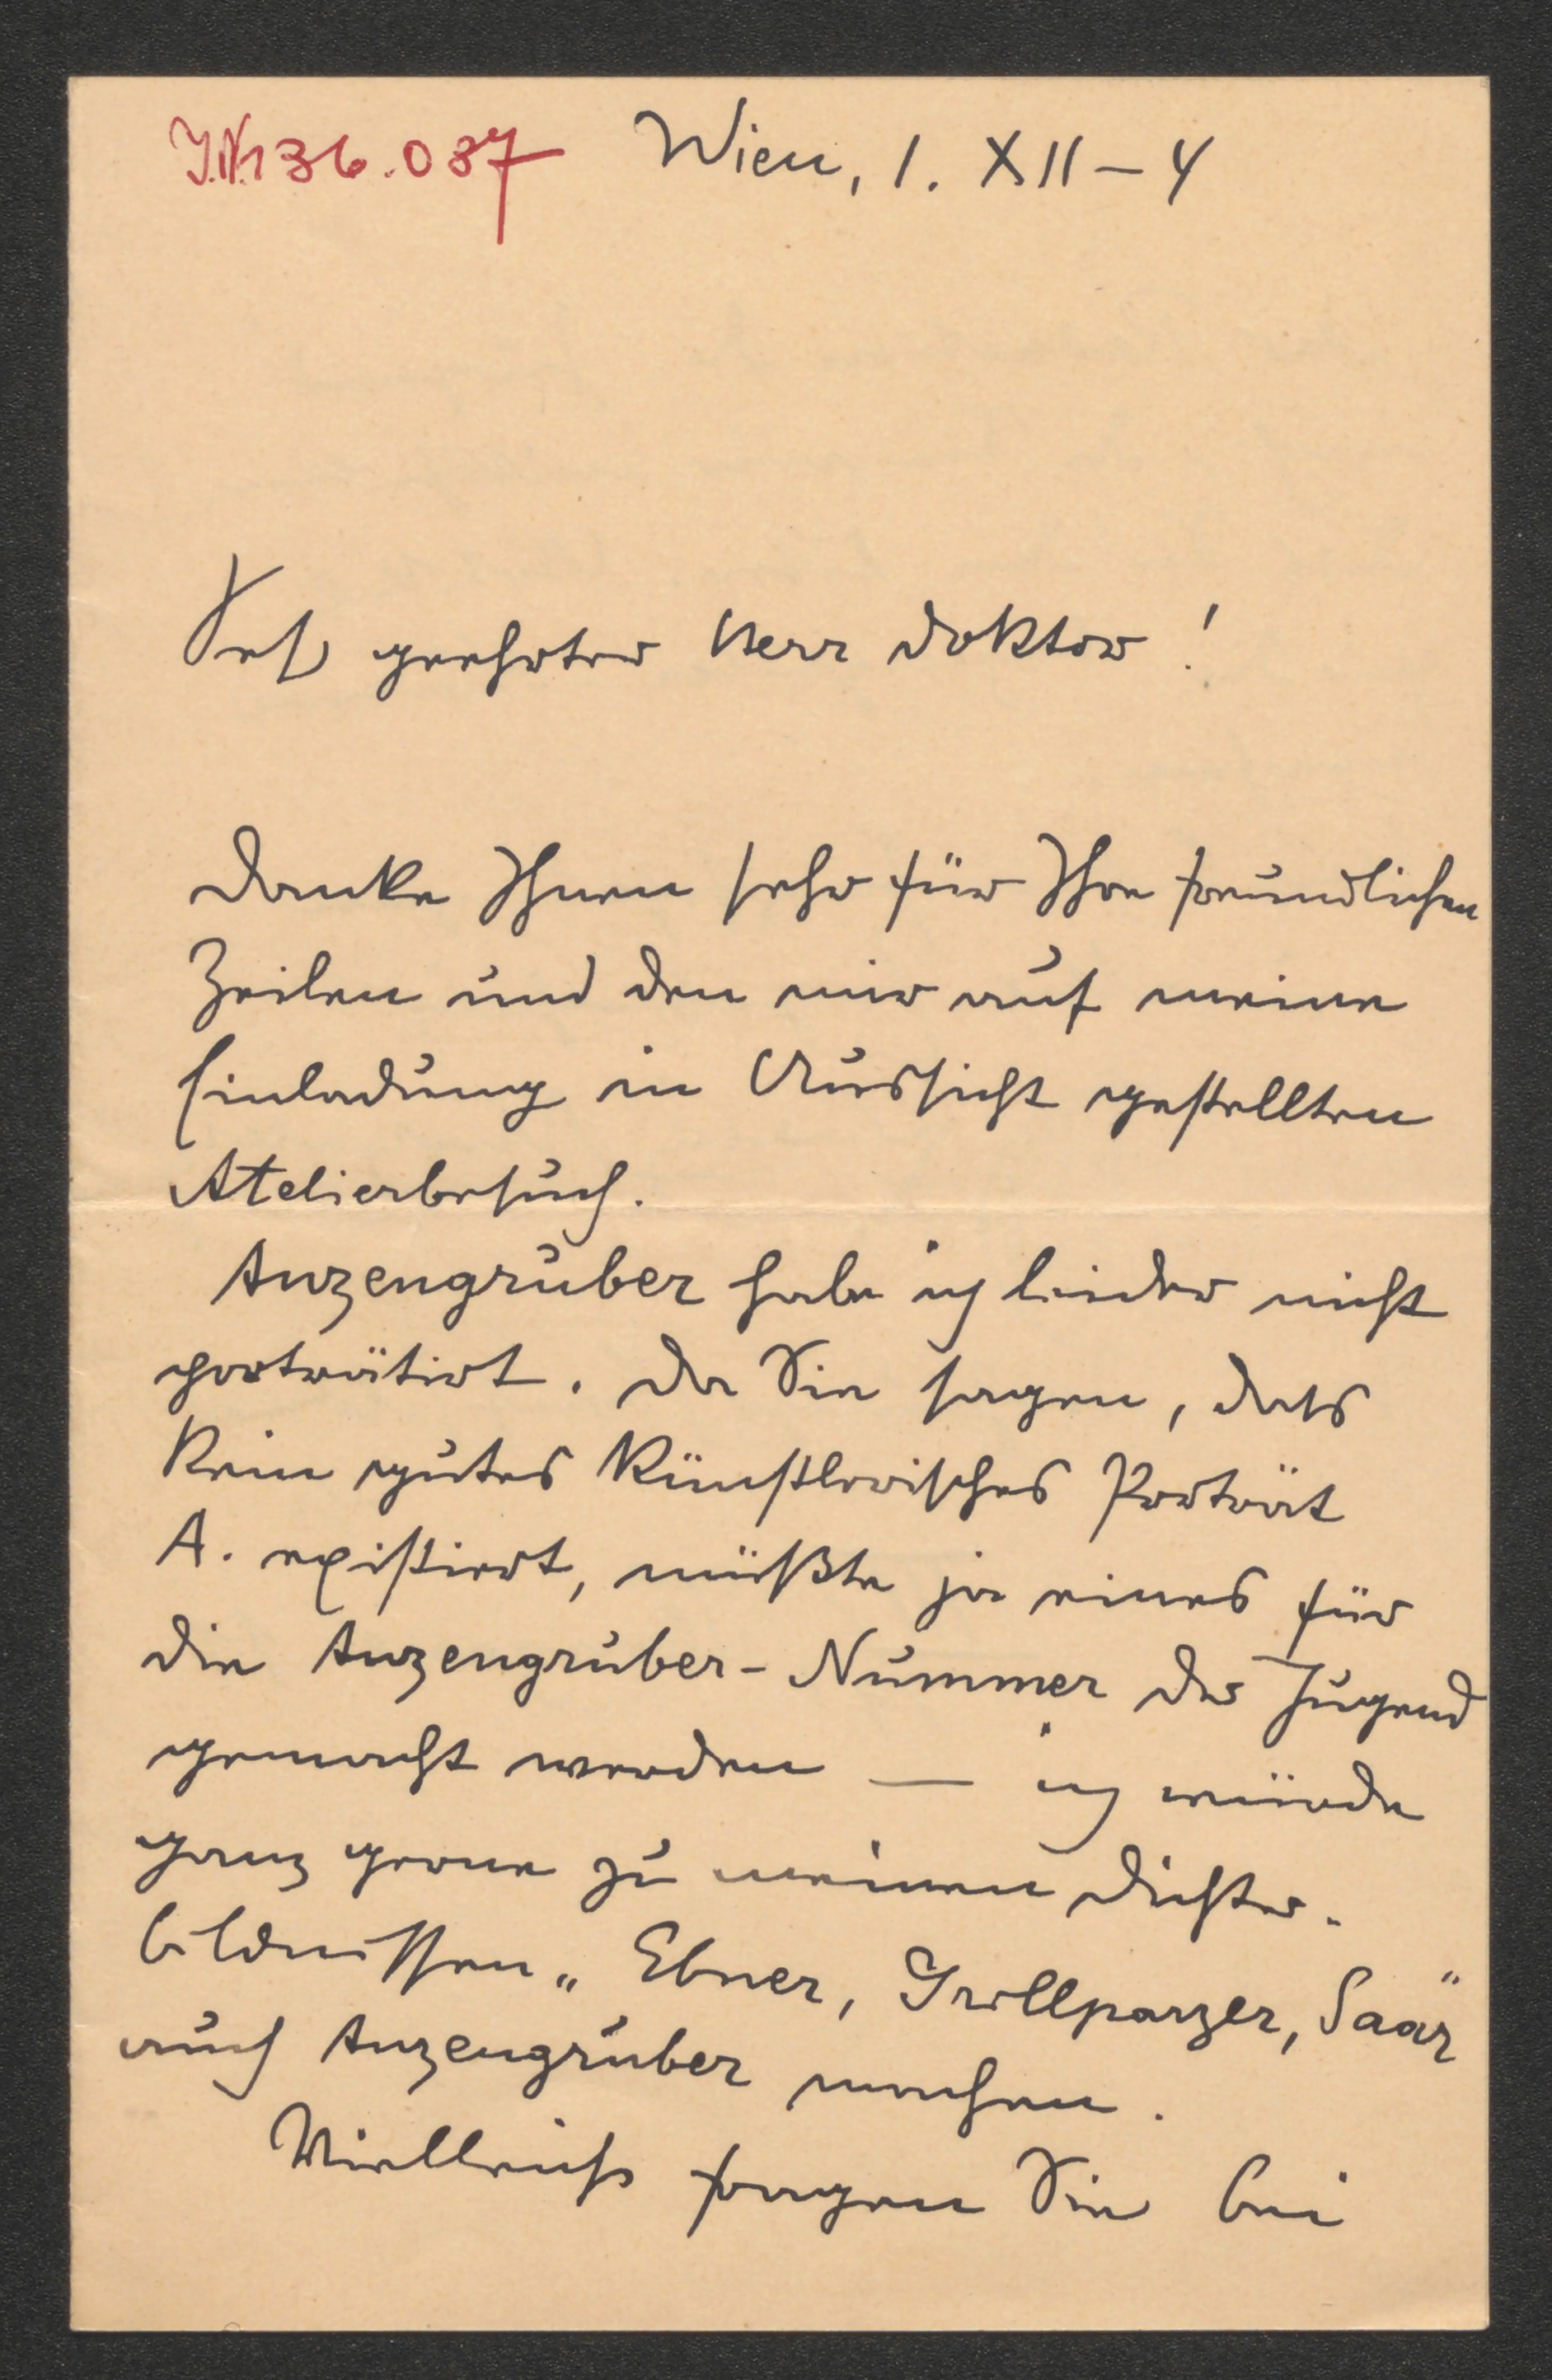 J.N. 136.037 Wien, 1. XII – 4
Sehr geehrter Herr Doktor!
Danke Ihnen sehr für Ihre freundlichen
Zeilen und den mir auf meine
Einladung in Aussicht gestellten
Atelierbesuch.
Anzengruber habe ich leider nicht
porträtirt. Da Sie sagen, dass
kein gutes künstlerisches Porträt
A. existiert, müßte ja eines für
die Anzengruber-Nummer der Jugend
gemacht werden — ich würde
ganz gerne zu meinen Dichter-
bildnissen „Ebner, Grillparzer, Saar“
auch Anzengruber machen.
Vielleicht fragen Sie bei